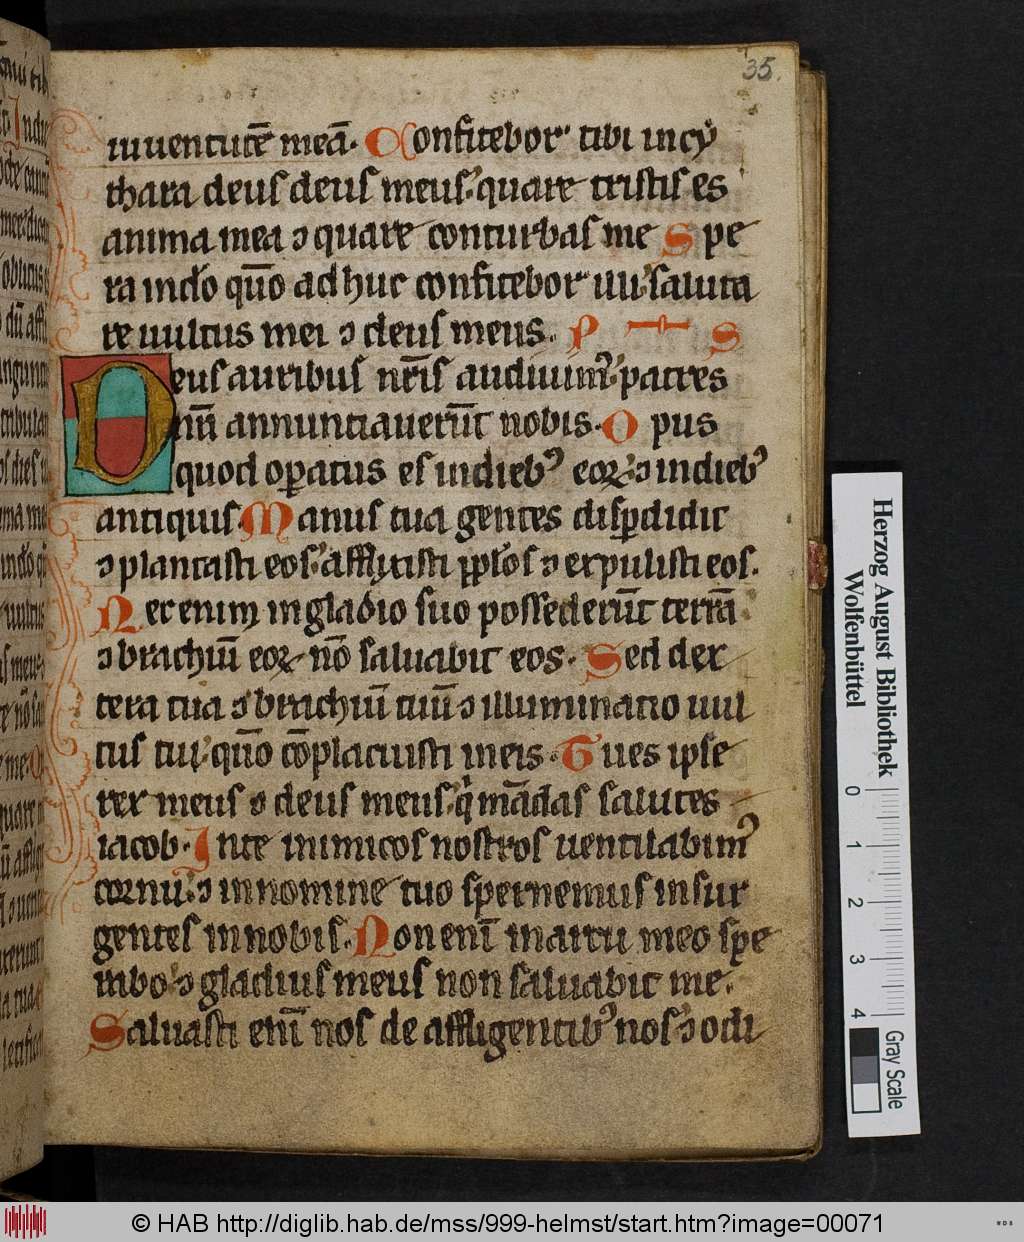 35.
iuuentutē meā. Confitebor tibi in cy
thara deus deus meus quare tristis es
anima mea ⁊ quare conturbas me Spe
ra in dō quō ad huc confitebor illi saluta
re uultus mei ⁊ deus meus. P S
Deus auribus nr̄is audiuim9 patres
nr̄i annuntiauerūt nobis. Opus
quod oꝑatus es in dieb9 eoꝝ ⁊ in dieb9
antiquis. Manus tua gentes disꝑdidit
⁊ plantasti eos afflixisti pplos ⁊ expulisti eos.
Nec enim in gladio suo possederūt terrā
⁊ brachiū eoꝝ nō saluabit eos. Sed dex
tera tua ⁊ brachiū tuū ⁊ illuminatio uul
tus tui quō cōplacuisti in eis. Tu es ipse
rex meus ⁊ deus meus q̇ mādas salutes
iacob. In te inimicos nostros uentilabim9
cornu ⁊ in nomine tuo spernemus insur
gentes in nobis. Non enī in arcu meo spe
rabo ⁊ gladius meus non saluabit me.
Saluasti enī nos de affligentib9 nos ⁊ odi
Herzog August Bibliothek
Wolfenbüttel
0 1 2 3 4
Gray Scale
© HAB http://diglib.hab.de/mss/999-helmst/start.htm?image=00071